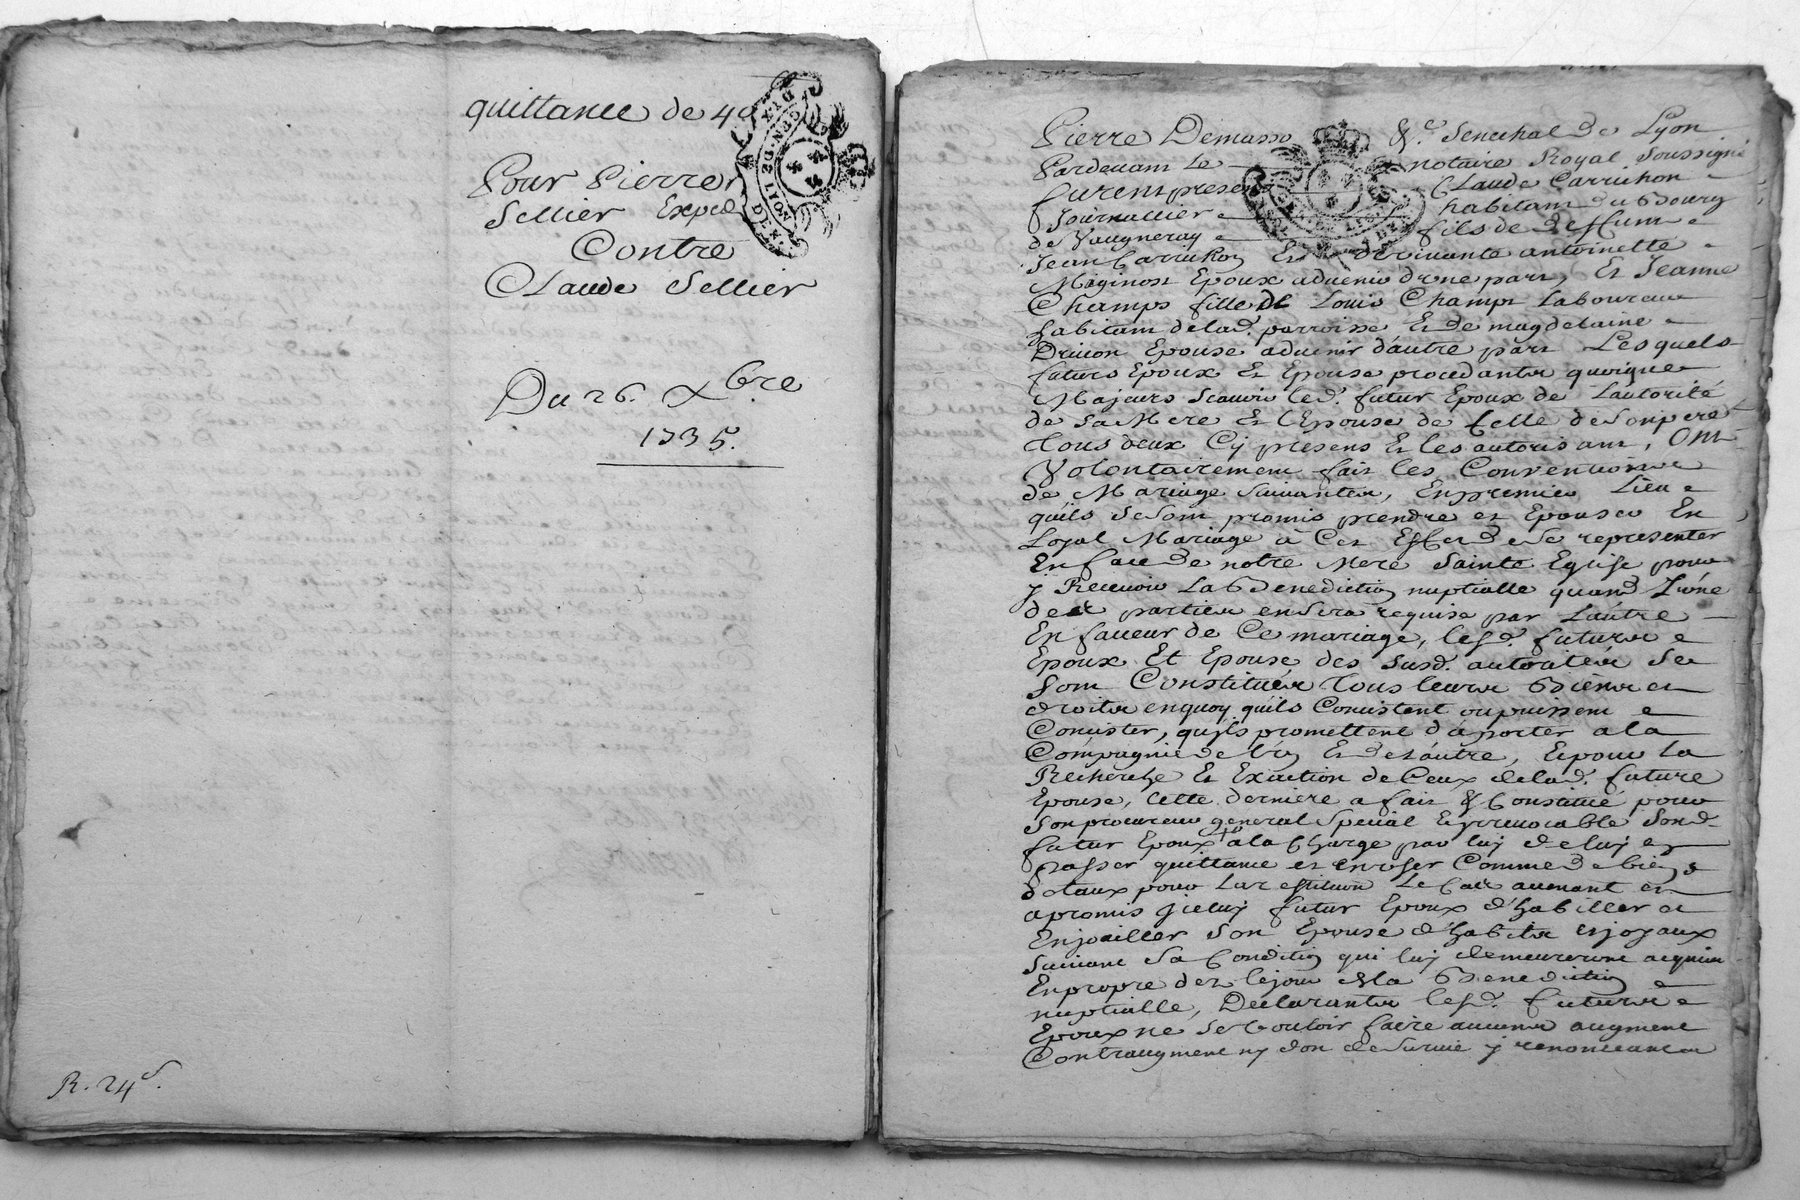 quittance de 40
Pour Pierre
Sellier Exped
Contre
Claude Sellier
Du 26. Xbre
1735.
R. 24s.
GEN. DE LION
DIX
DEN.
Pierre Demasso &c. Senechal de Lyon
Pardevant Le notaire Royal Soussigné
furent presens Claude Carrichon
Journallier habitant du Bourg
de Vaugneray fils de deffunt
Jean Carrichon Et de vivante antoinette
Maginost Epoux advenir d'une part, Et Jeanne
Champs fille de Louis Champs Laboureur
habitant de lad. parroisse Et de magdelaine
Drivon Epouse advenir d'autre part Lesquels
futurs Epoux Et Epouse procedants quoique
Majeurs Scavoir led. futur Epoux de L'autorité
de sa Mere Et L'Epouse de Celle de son pere
tous deux Cy presens Et les autorisant, Ont
Volontairement fait les Conventions
de Mariage Suivantes, En premier Lieu
quils se sont promis prendre et Epouser En
Loyal Mariage a Cet Effet de se representer
En face de notre Mere Sainte Eglise pour
y Recevoir La Benediction nuptialle quand L'une
des parties en sera requise par L'autre
En faveur de Ce mariage, lesd. futurs
Epoux Et Epouse des susd. autorités se
sont Constitués tous leurs Biens et
droits en quoy quils Consistent ou puissent
Consister, quils promettent d'aporter a la
Compagnie de l'un Et de l'autre, Et pour La
Recherche Et Exaction de Ceux de lad. future
Epouse, Cette derniere a fait & Constitué pour
Son procureur general Special Et irrevocable Sond.
futur Epoux a la Charge par luy de luy en
passer quittance et en user Comme de biens
dotaux pour La restitution Le Cas avenant et
a promis Jceluy futur Epoux d'habiller et
Enjoailler son Epouse d'habits et joyaux
suivant sa Condition qui luy demeureront acquis
En propre dez le jour de la Benediction
nuptialle, Declarants lesd. futurs
Epoux ne Se Vouloir faire aucuns augment
Contraugment ny don de Survie y renonceants